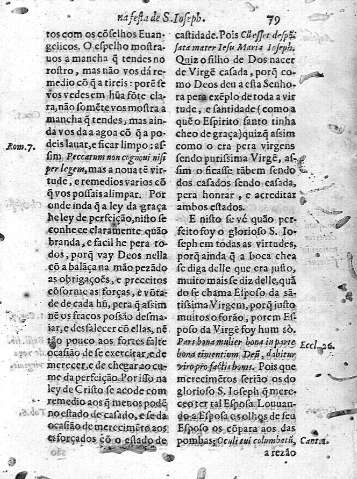 na festa de S. Ioseph. 79
tos com os cõselhos Euan-
gelicos. O espelho mostra-
uos a mancha q̃ tendes no
rostro, mas não vos dá re-
medio cõ q̃ a tireis: porẽ se
vos vedes em hũa fõte cla-
ra, não sómẽte vos mostra a
mancha q̃ tendes, mas ain-
da vos da a agoa cõ q̃ a po-
deis lauar, e ficar limpo: as-
Rom. 7.
sim. Peccatum non cognoui nisi
per legem, mas a noua tẽ vir-
tude, e remedios varios cõ
q̃ vos possais alimpar. Por
onde inda q̃ a ley da graça
he ley de perfeição, nisto se
conhece claramente quão
branda, e facil he pera to-
dos, porq̃ vay Deos nella
cõ a balãça na mão pezádo
as obrigaçoẽs, e preceitos
cõforme as forças, e võta-
de de cada hũ, pera q̃ assim
nẽ os fracos possão desma-
iar, e desfalecer cõ ellas, nẽ
tão pouco aos fortes falte
ocasião de se exercitar, e de
merecer, e de chegar ao cu-
me da perfeição. Por isso na
ley de Christo se acode com
remedio aos q̃ menos podẽ
no estado de casado, e se da
ocasião de merecimẽto aos
esforçados cõ o estado de
castidade. Pois Cũ esset despõ-
sata mater Iesu Maria Ioseph.
Quiz o filho de Dos nacer
de Virgẽ casada, porq̃ co-
mo Deos deu a esta Senho-
ra pera exẽplo de toda a vir
tude, e santidade (como a
que o Espirito santo tinha
cheo de graça) quiz q̃ assim
como o era pera virgens
sendo purissima Virgẽ, as-
sim o ficasse tãbem sendo
dos casados sendo casada,
pera honrar, e acreditar
ambos estados.
E nisto se vé quão per-
feito foy o glorioso S. Io-
seph em todas as virtudes,
porq̃ ainda q̃ a boca chea
se diga delle que era justo,
muito mais se diz delle, quã
do se chama Esposo da sã-
tissima Virgem, porq̃ justos
muitos o forão, porem Es-
poso da Virgẽ foy hum só.
Pars bona mulier bona in parte
Eccl. 26.
bona timentium Deũ, dabitur
viro pro factis bonis. Pois que
merecimẽtos serião os do
glorioso S. Ioseph q̃ merе-
ceo ter tal Esposa. Louuan-
do a Esposa os olhos de seu
Esposo os cõpara aos das
pombas: Oculi sui columbarũ,
Cant. 5.
a rezão